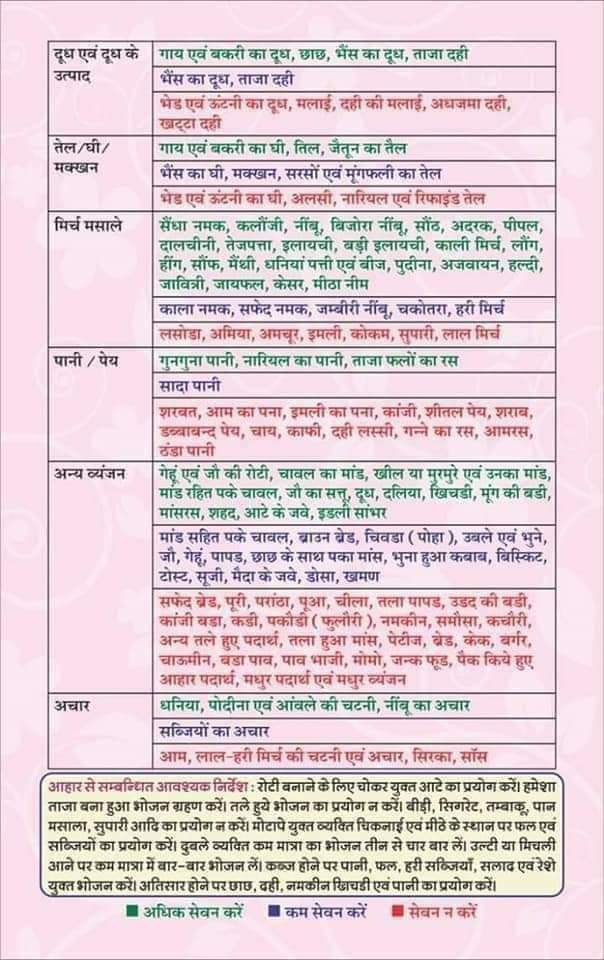 दूध एवं दूध के
उत्पाद
गाय एवं बकरी का दूध, छाछ, भैंस का दूध, ताजा दही
भैंस का दूध, ताजा दही
भेड एवं ऊंटनी का दूध, मलाई, दही की मलाई, अधजमा दही,
खट्टा दही
तेल/घी/
मक्खन
गाय एवं बकरी का घी, तिल, जैतून का तैल
भैंस का घी, मक्खन, सरसों एवं मूंगफली का तेल
भेड एवं ऊंटनी का घी, अलसी, नारियल एवं रिफाइंड तेल
मिर्च मसाले
सैंधा नमक, कलौंजी, नींबू, बिजोरा नींबू, सौंठ, अदरक, पीपल,
दालचीनी, तेजपत्ता, इलायची, बड़ी इलायची, काली मिर्च, लौंग,
हींग, सौंफ, मैंथी, धनियां पत्ती एवं बीज, पुदीना, अजवायन, हल्दी,
जावित्री, जायफल, केसर, मीठा नीम
काला नमक, सफेद नमक, जम्बीरी नींबू, चकोतरा, हरी मिर्च
लसोडा, अमिया, अमचूर, इमली, कोकम, सुपारी, लाल मिर्च
पानी / पेय
गुनगुना पानी, नारियल का पानी, ताजा फलों का रस
सादा पानी
शरबत, आम का पना, इमली का पना, कांजी, शीतल पेय, शराब,
डब्बाबन्द पेय, चाय, काफी, दही लस्सी, गन्ने का रस, आमरस,
ठंडा पानी
अन्य व्यंजन
गेहूं एवं जौ की रोटी, चावल का मांड, खील या मुरमुरे एवं उनका मांड,
मांड रहित पके चावल, जौ का सत्तू, दूध, दलिया, खिचडी, मूंग की बडी,
मांसरस, शहद, आटे के जवे, इडली सांभर
मांड सहित पके चावल, ब्राउन ब्रेड, चिवडा ( पोहा ), उबले एवं भुने,
जौ, गेहूं, पापड, छाछ के साथ पका मांस, भुना हुआ कबाब, बिस्किट,
टोस्ट, सूजी, मैदा के जवे, डोसा, खमण
सफेद ब्रेड, पूरी, परांठा, पूआ, चीला, तला पापड, उडद की बडी,
कांजी बडा, कडी, पकौडी ( फुलौरी ), नमकीन, समौसा, कचौरी,
अन्य तले हुए पदार्थ, तला हुआ मांस, पेटीज, ब्रेड, केक, बर्गर,
चाऊमीन, बडा पाव, पाव भाजी, मोमो, जन्क फूड, पैक किये हुए
आहार पदार्थ, मधुर पदार्थ एवं मधुर व्यंजन
अचार
धनिया, पोदीना एवं आंवले की चटनी, नींबू का अचार
सब्जियों का अचार
आम, लाल-हरी मिर्च की चटनी एवं अचार, सिरका, सॉस
आहार से सम्बन्धित आवश्यक निर्देश : रोटी बनाने के लिए चोकर युक्त आटे का प्रयोग करें। हमेशा
ताजा बना हुआ भोजन ग्रहण करें। तले हुये भोजन का प्रयोग न करें। बीड़ी, सिगरेट, तम्बाकू, पान
मसाला, सुपारी आदि का प्रयोग न करें। मोटापे युक्त व्यक्ति चिकनाई एवं मीठे के स्थान पर फल एवं
सब्जियों का प्रयोग करें। दुबले व्यक्ति कम मात्रा का भोजन तीन से चार बार लें। उल्टी या मिचली
आने पर कम मात्रा में बार-बार भोजन लें। कब्ज होने पर पानी, फल, हरी सब्जियाँ, सलाद एवं रेशे
युक्त भोजन करें। अतिसार होने पर छाछ, दही, नमकीन खिचडी एवं पानी का प्रयोग करें।
अधिक सेवन करें कम सेवन करें सेवन न करें